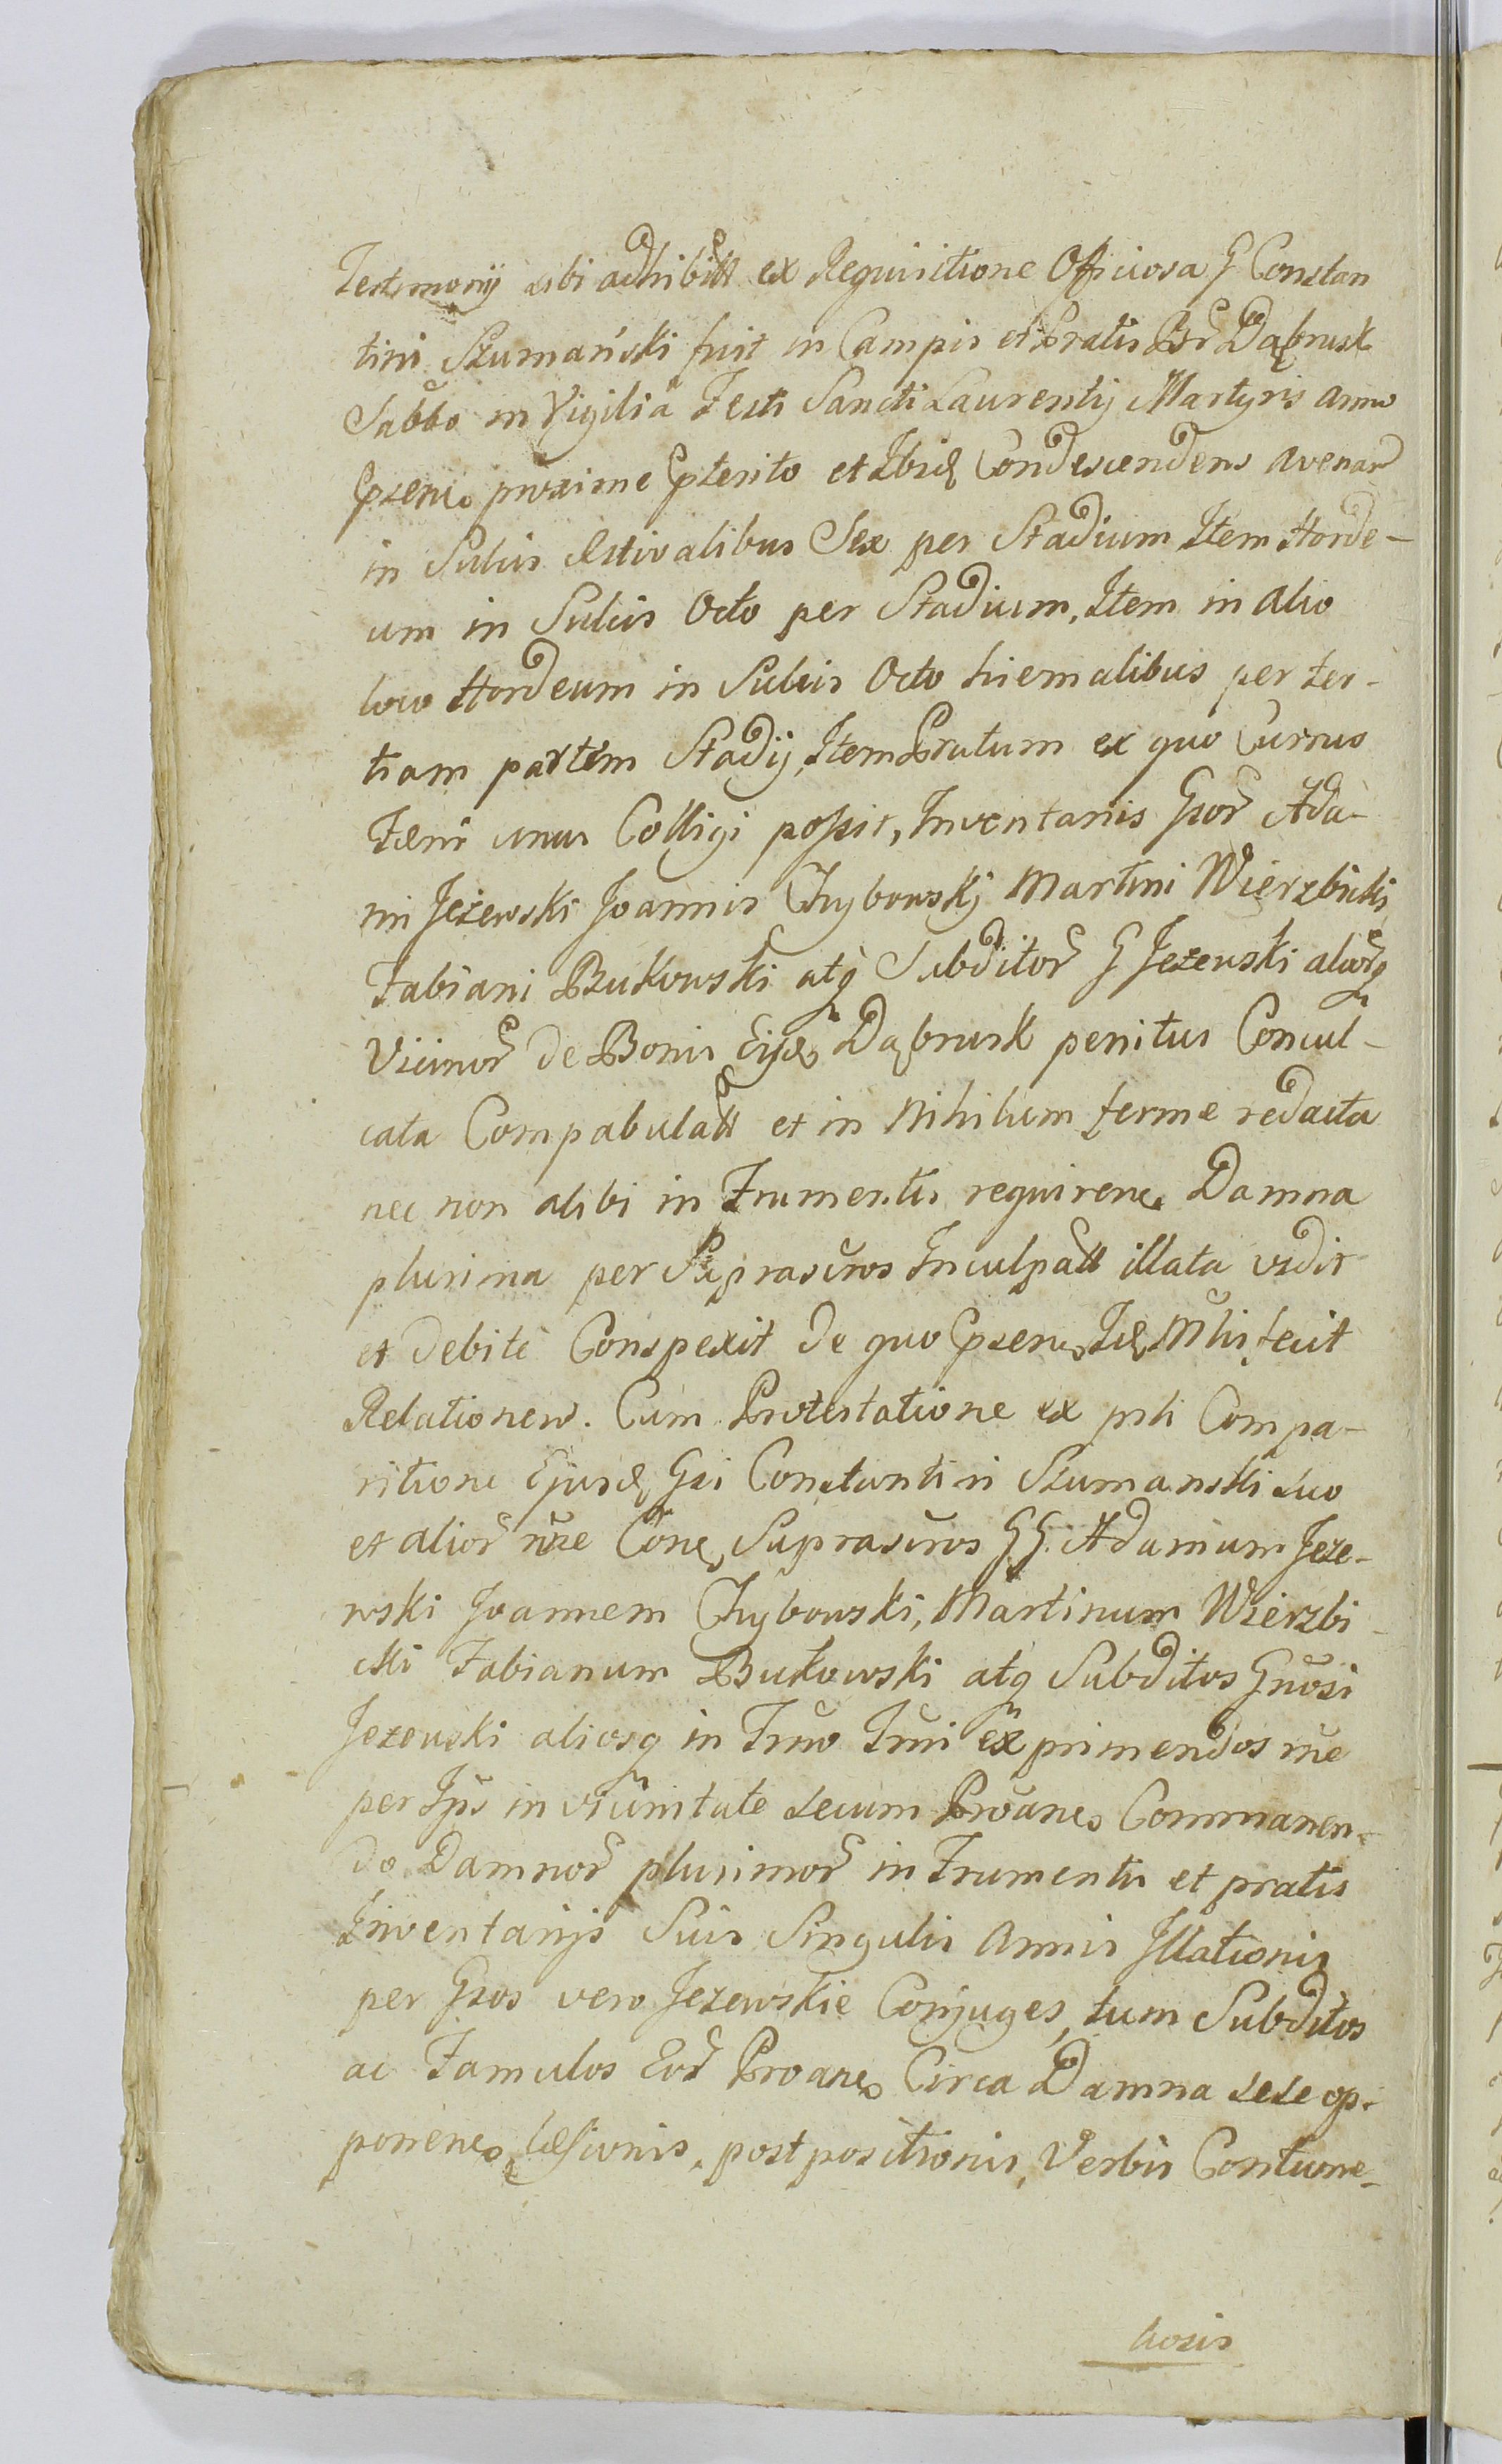 Testimonij sibi adhibitt ex Requisitione Officiosa G Constan
tini Szumański fuit in Campis et Pratis Br Dąbrusk
Sabbo in Vigilia Festi Sancti Laurentij Martyris Anno
proxime et Ibid Condescendens Avenam
in Sulcis Estivalibus Sex per Stadium Item Horde-
um in Sulcis Octo per Stadium, Item in Alio
loco Hordeum in Sulcis Octo hiemalibus per ter-
tiam partem Stadij, Item Pratum ex quo Currus
Fæni unus Colligi possit, Inventariis Gsor Ada-
mi Jeżewski Joannis Chybowskj Martini Wierzbicki
Fabiani Bukowski atq Subditor G Jeżewski aliorq
Vicinor de Bonis Eijsd Dąbrusk penitus Concul-
cata Compabulatt et in Nihilum ferme redacta
nec non alibi in Frumentis requirene Damna
plurima per Suprascros Inculpatt illata vidit
et debite Conspexit de quo Id Mhi fecit
Relationem. Cum Protestatione ex prti Compa-
ritione Ejusd Gsi Constantini Szumanski suo
et alior nne Cone Suprascros GG. Adamum Jeże-
wski Joannem Chybowski, Martinum Wierzbi-
cki Fabianum Bukowski atq Subditos Gnosi
Jeżewski aliosq in Trmo Trmi Exprimendos rne
per Ips in vicinitate secum Proane Commanen-
do Damnor plurimor in Frumentis et pratis
Inventarijs Suis Singulis Annis Illationis
per Gsos vero Jeżewskie Conjuges, tum Subditos
ac Famulos Eor Proane Circa Damna sese op-
ponene læsionis, postpositionis, Verbis Contume-
liosis